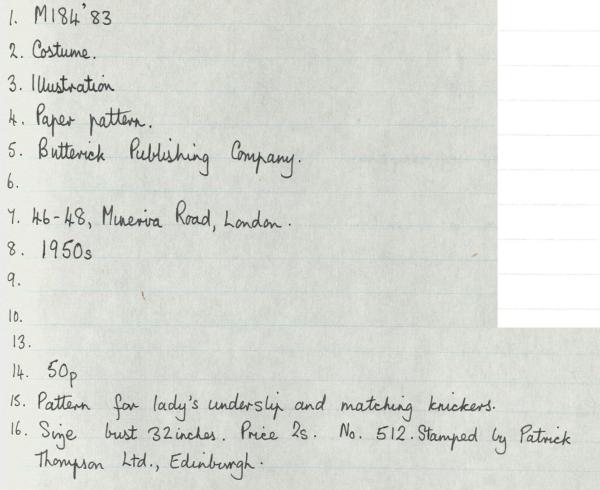 1. M184'83
2. Costume.
3. Illustration
4. Paper pattern.
5. Butterick Publishing Company.
6.
7. 46-48, Minerva Road, London.
8. 1950s
9.
10.
13.
14. 50p
15. Pattern for lady's underslip and matching knickers.
16. Size bust 32 inches. Price 2s. No. 512. Stamped by Patrick
Thompson Ltd., Edinburgh.